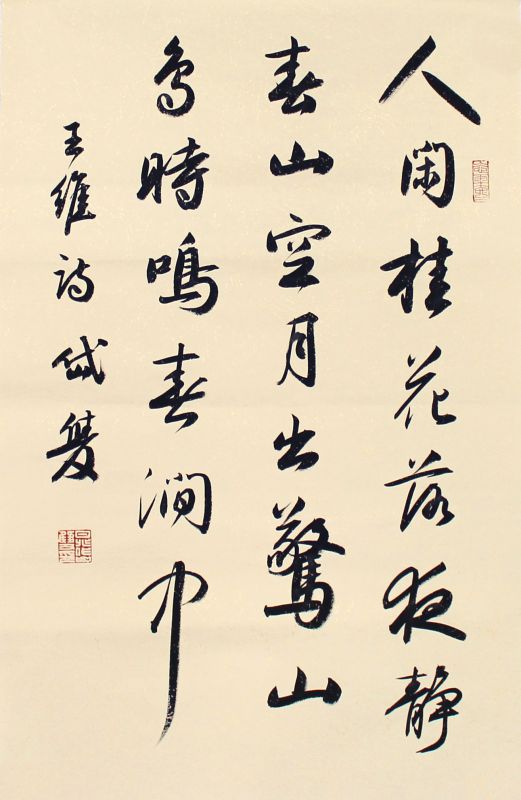 人閑桂花落夜静
春山空月出驚山
鳥時鳴春澗中
王維詩岱